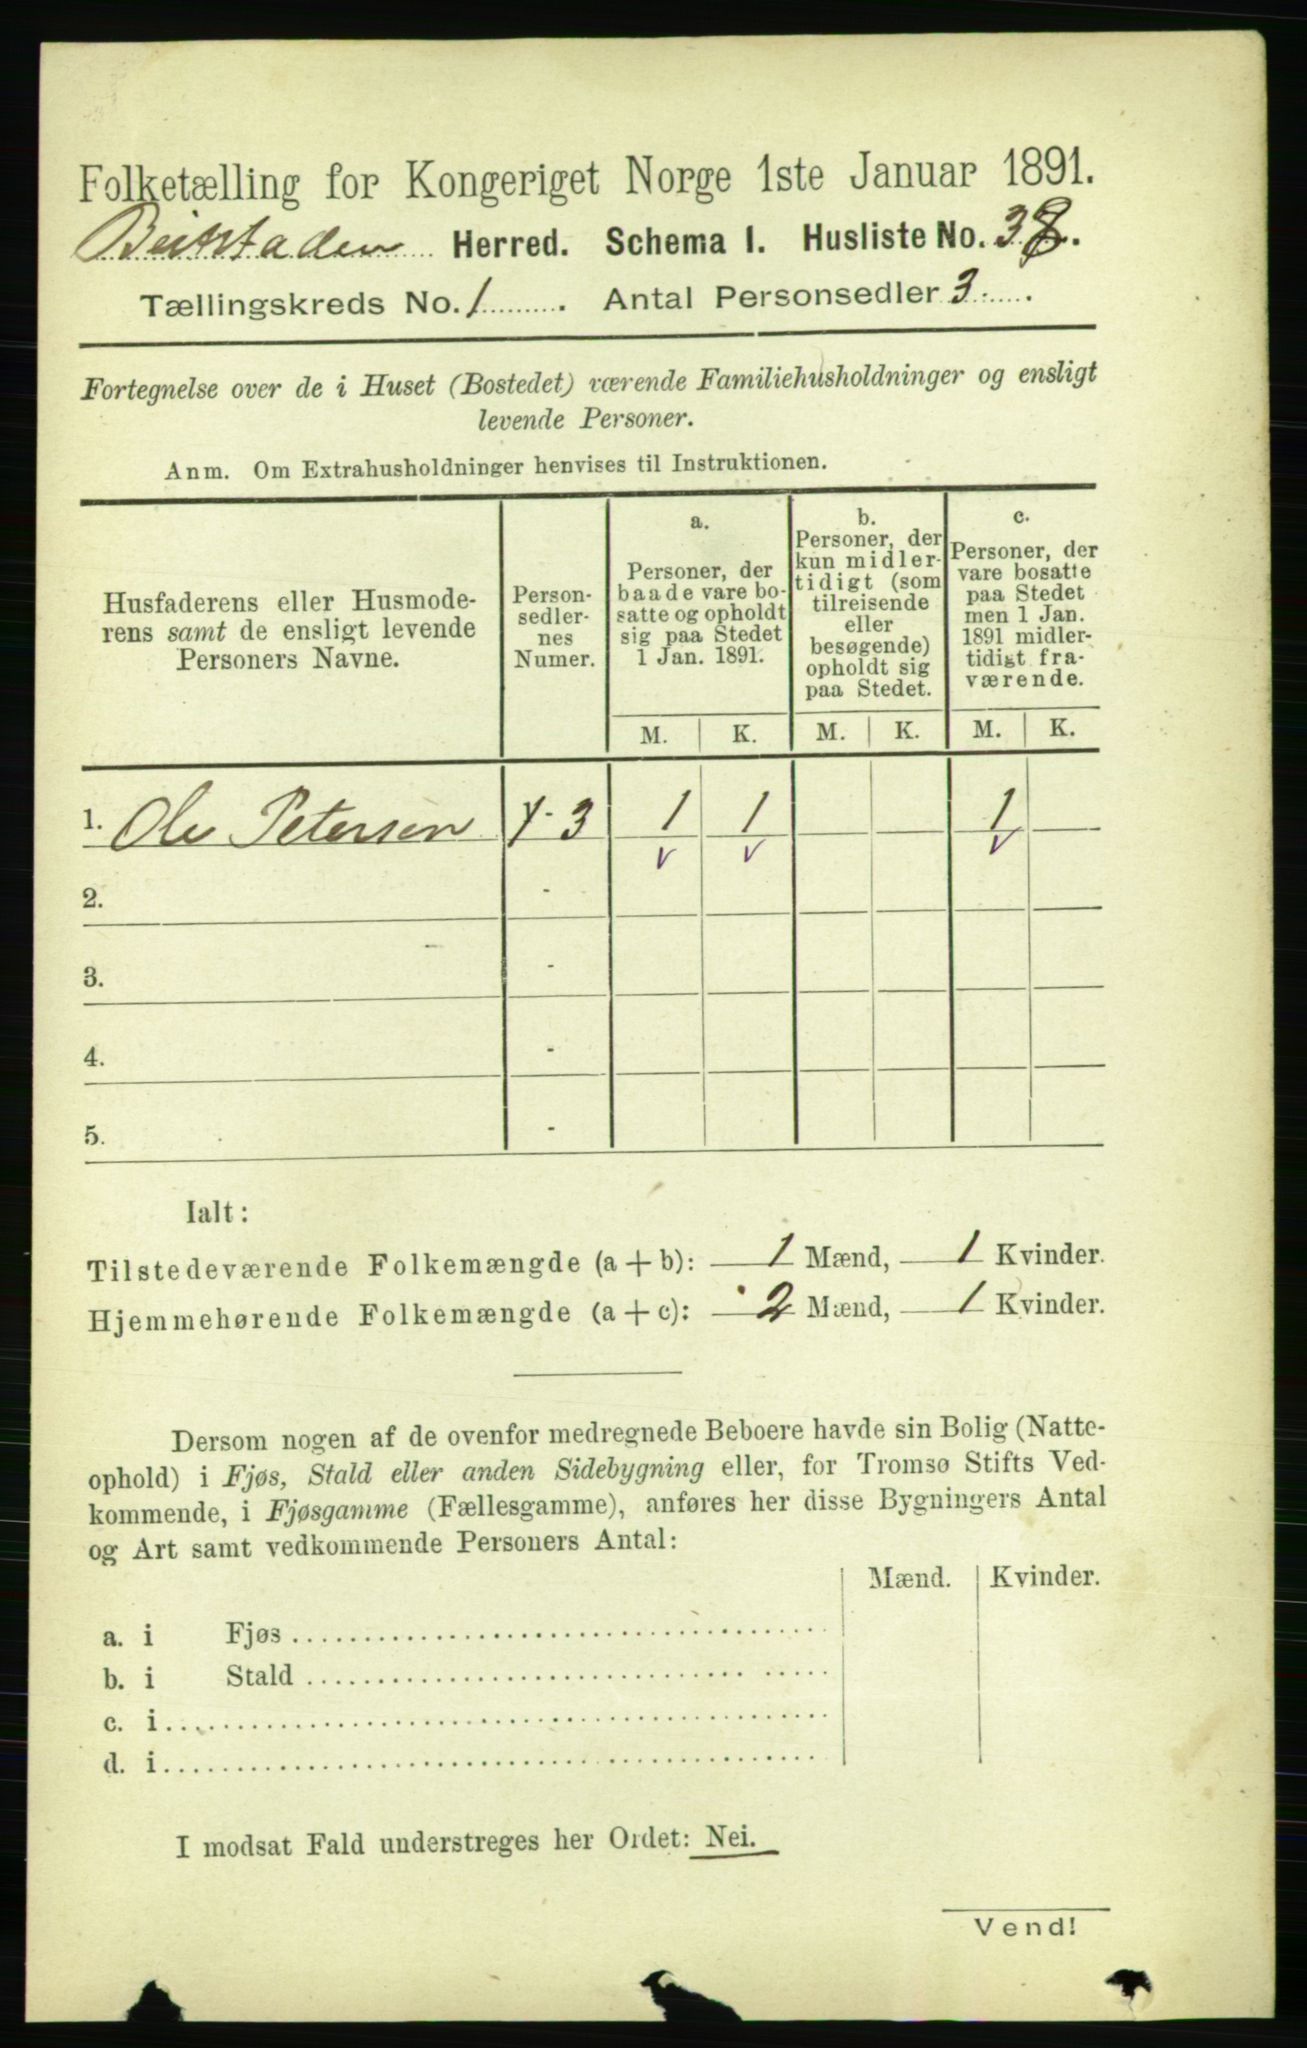 Folketælling for Kongeriget Norge 1ste Januar 1891.
Beitstaden Herred. Schema 1. Husliste No. 38.
Tællingskreds No. 1. Antal Personsedler 3.
Fortegnelse over de i Huset (Bostedet) værende Familiehusholdninger og ensligt
levende Personer.
Anm. Om Extrahusholdninger henvises til Instruktionen.
Husfaderens eller Husmode-
rens samt de ensligt levende
Personers Navne.
Person-
sedler-
nes
Numer.
a.
Personer, der
baade vare bo-
satte og opholdt
sig paa Stedet
1 Jan. 1891.
b.
Personer, der
kun midler-
tidigt (som
tilreisende
eller
besøgende)
opholdt sig
paa Stedet.
c.
Personer, der
vare bosatte
paa Stedet
men 1 Jan.
1891 midler-
tidigt fra-
værende.
M. K. M. K. M. K.
1. Ole Petersen 1-3 1 1 1
2. -
3. -
4. -
5. -
Ialt:
Tilstedeværende Folkemængde (a+b): 1 Mænd, 1 Kvinder.
Hjemmehørende Folkemængde (a+c): 2 Mænd, 1 Kvinder.
Dersom nogen af de ovenfor medregnede Beboere havde sin Bolig (Natte-
ophold) i Fjøs, Stald eller anden Sidebygning eller, for Tromsø Stifts Ved-
kommende, i Fjøsgamme (Fællesgamme), anføres her disse Bygningers Antal
og Art samt vedkommende Personers Antal:
Mænd. Kvinder.
a. i Fjøs
b. i Stald
c. i
d. i
I modsat Fald understreges her Ordet: Nei.
Vend!